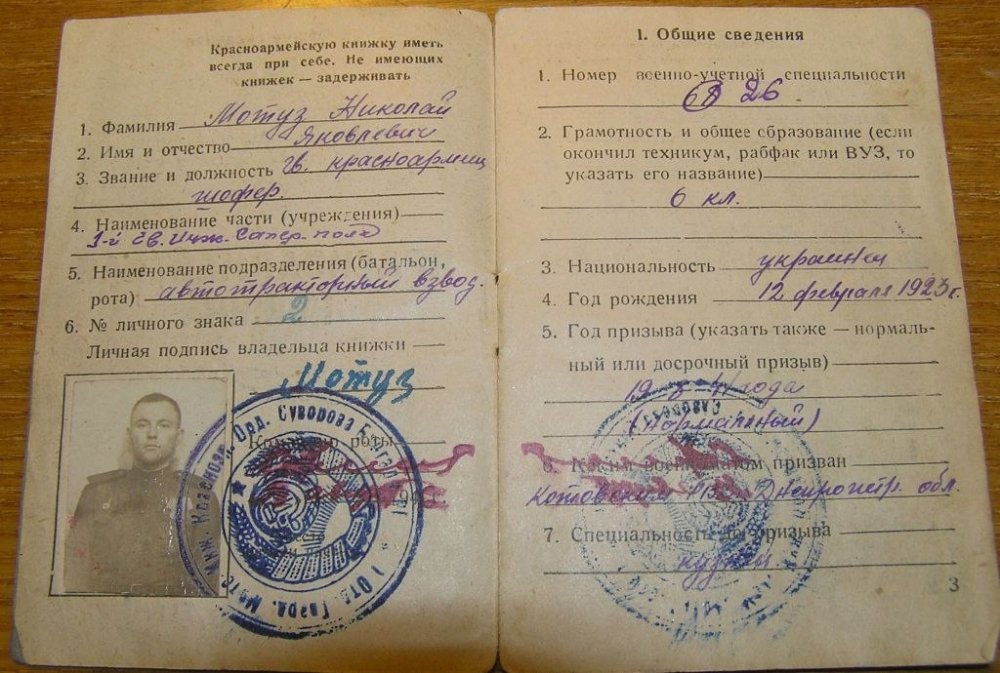 Красноармейскую книжку иметь
всегда при себе. Не имеющих
книжек — задерживать
1. Фамилия Мотуз Николай
2. Имя и отчество Яковлевич
3. Звание и должность гв. красноармеец
шофер.
4. Наименование части (учреждения)
1-й гв. Инж. Сапер. полк
5. Наименование подразделения (батальон,
рота) автотракторный взвод.
6. № личного знака 2
Личная подпись владельца книжки
Мотуз
Командир роты
1. Общие сведения
1. Номер военно-учетной специальности
26.
2. Грамотность и общее образование (если
окончил техникум, рабфак или ВУЗ, то
указать его название)
6 кл.
3. Национальность украинец
4. Год рождения 12 февраля 1923 г.
5. Год призыва (указать также — нормаль-
ный или досрочный призыв)
года
(нормальный)
6. Каким военкоматом призван
Котовским РВК Днепропетр. обл.
7. Специальность до призыва
3
Орд. Суворова
Отд. Гвард. Мото. Инж.